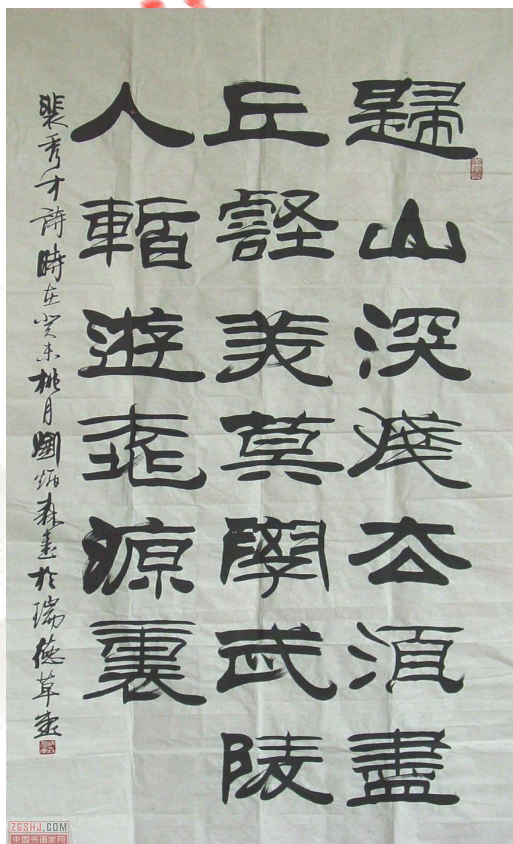 歸山深淺去須盡
丘壑美莫學武陵
人暫遊桃源裏
裴秀才詩時在癸未桃月劉炳森書於瑞德草堂
ZGSHJ.COM
中国书画家网